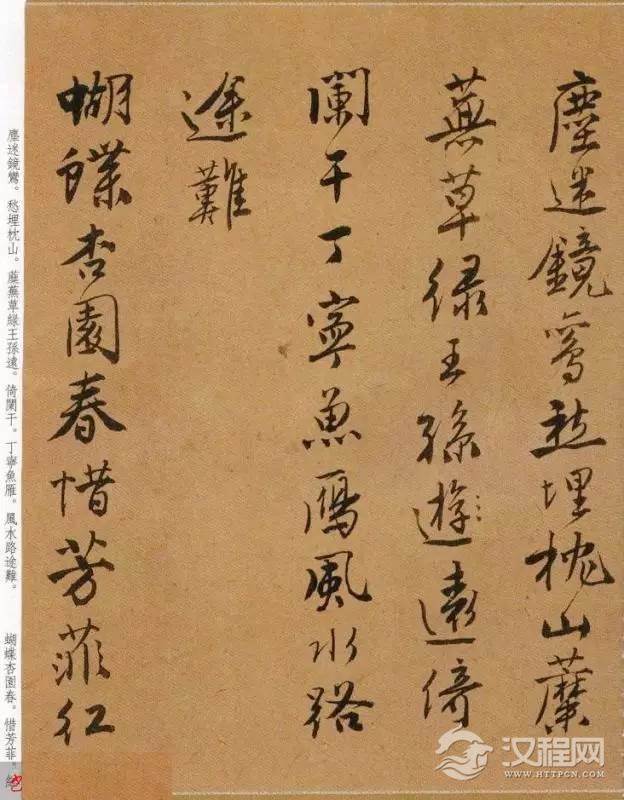 塵迷鏡鸞愁埋枕山蘼
蕪草绿王孫遊遠倚
闌干丁寧魚鴈風水路
途難
蝴蝶杏園春惜芳菲红
塵迷鏡鸞。愁埋枕山。蘼蕪草綠王孫遠。倚闌干。丁寧魚雁。風水路途難。 蝴蝶杏園春。惜芳菲。紅
汉程网
WWW.HTTPCN.COM